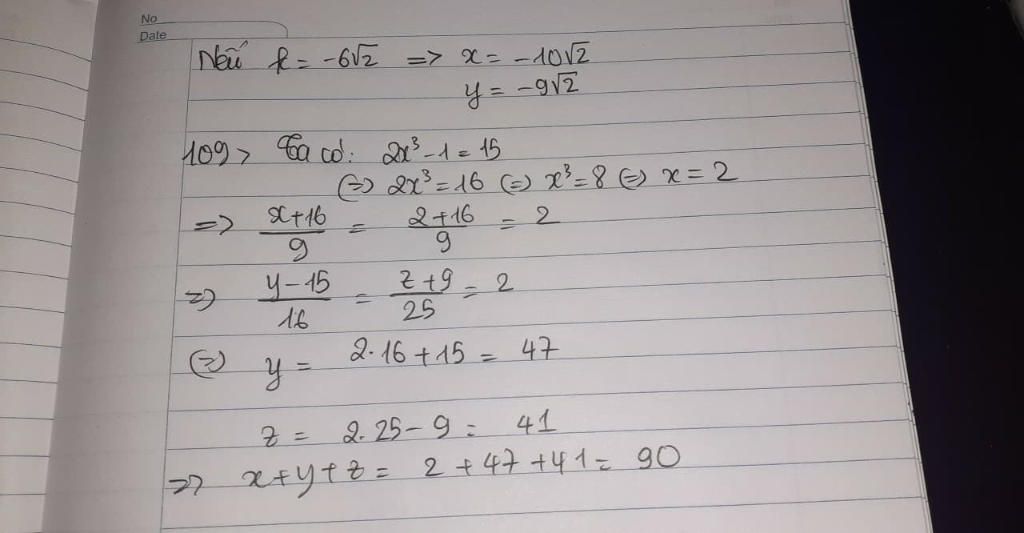 No
Date
Nếu k = -6√2 => x = -10√2
y = -9√2
109> Ta có: 2x³ - 1 = 15
(=) 2x³ = 16 (=) x³ = 8 (=) x = 2
=> (x+16)/9 = (2+16)/9 = 2
=> (y-15)/16 = (z+9)/25 = 2
(=) y = 2.16 + 15 = 47
z = 2.25 - 9 = 41
=> x+y+z = 2 + 47 + 41 = 90